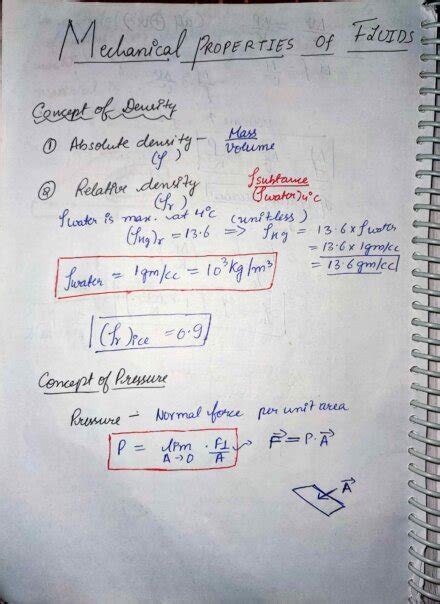 Mechanical PROPERTIES of FLUIDS
Concept of Density
① Absolute density - Mass / Volume
(ρ)
② Relative density ρsubstance / (ρwater)4°C
(ρr)
ρwater is max. at 4°C (unitless)
(ρHg)r = 13.6 => ρHg = 13.6 x ρwater
= 13.6 x 1gm/cc
= 13.6 gm/cc
ρwater = 1gm/cc = 10³ Kg/m³
(ρr)ice = 0.9
Concept of Pressure
Pressure - Normal force per unit area
P = lim A→0 · F⊥/A → F⃗ = P·A⃗
A⃗